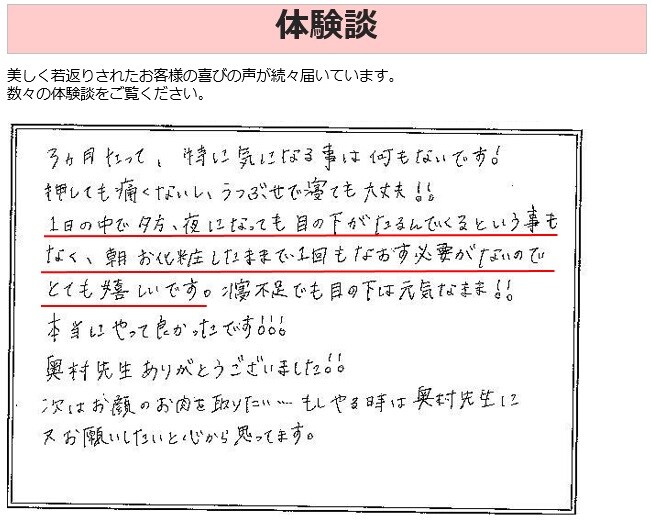 体験談
美しく若返りされたお客様の喜びの声が続々届いています。
数々の体験談をご覧ください。
3ヶ月たって、特に気になる事は何もないです!
押しても痛くないし、うつぶせで寝ても大丈夫!!
1日の中で夕方、夜になっても目の下がたるんでくるという事も
なく、朝お化粧したままで1回もなおす必要がないので
とても嬉しいです。寝不足でも目の下は元気なまま!!
本当にやって良かったです!!!
奥村先生ありがとうございました!!
次はお顔のお肉を取りたい…もしやる時は奥村先生に
又お願いしたいと心から思ってます。